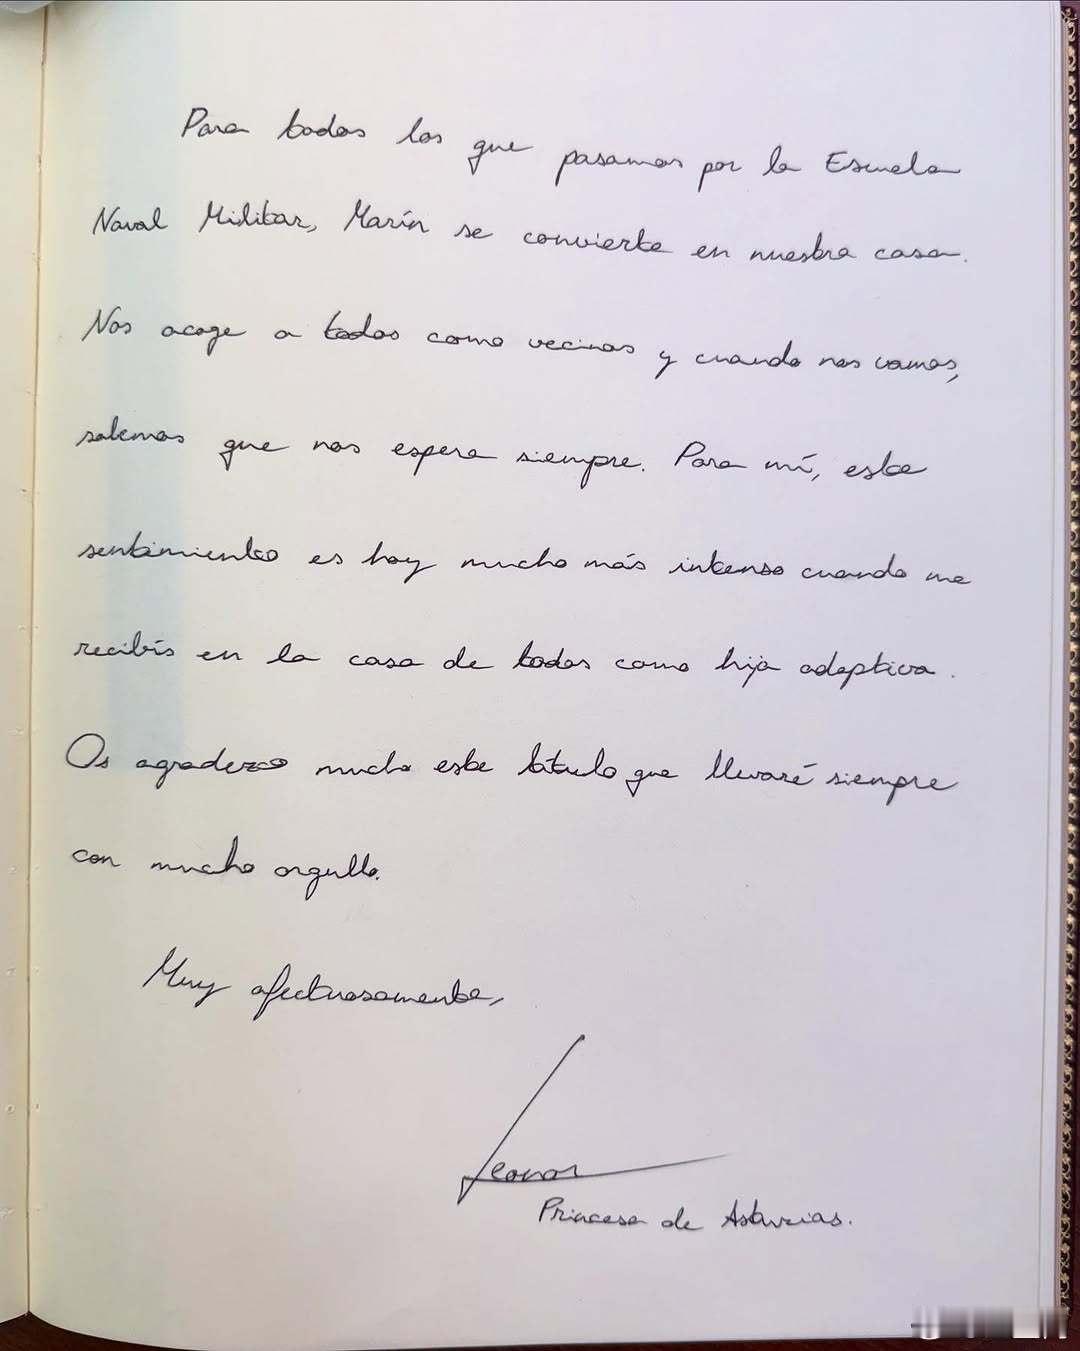 Para todos los que pasamos por la Escuela
Naval Militar, Marín se convierte en nuestra casa.
Nos acoge a todos como vecinos y cuando nos vamos,
sabemos que nos espera siempre. Para mí, este
sentimiento es hoy mucho más intenso cuando me
recibís en la casa de todos como hija adoptiva.
Os agradezco mucho este título que llevaré siempre
con mucho orgullo.
Muy afectuosamente,
Leonor
Princesa de Asturias.